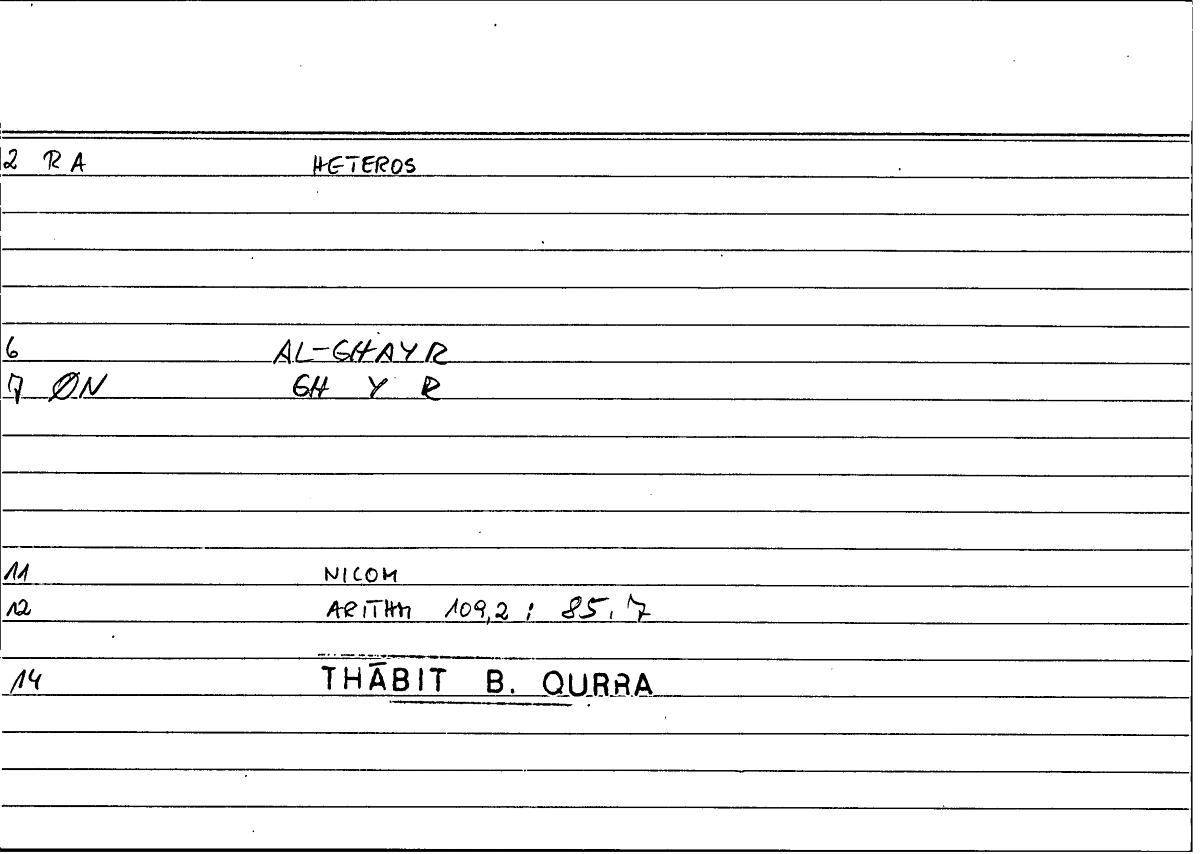 2 RA HETEROS
6 AL-GHAYR
7 ØN GH Y R
11 NICOM
12 ARITHM 109,2 : 85,7
14 THĀBIT B. QURRA